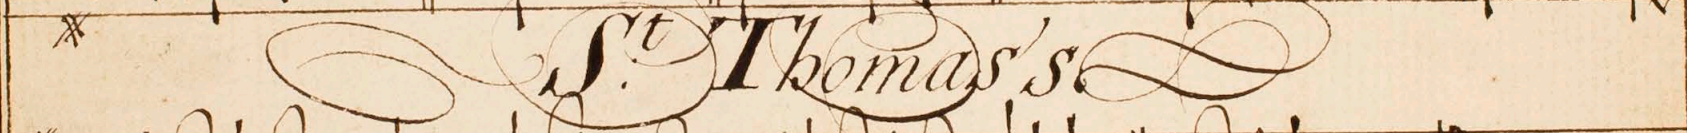 St. Thomas's.